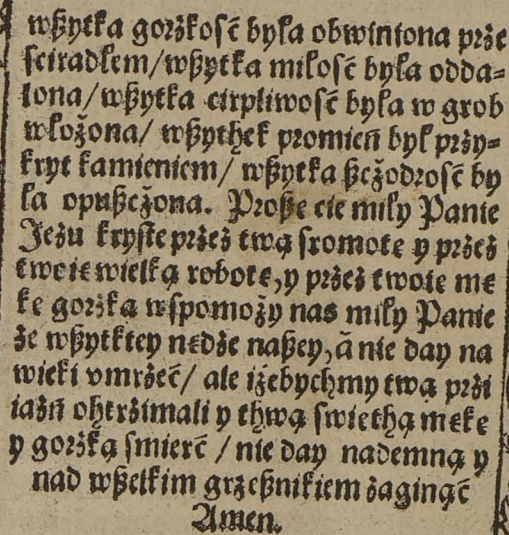 wßytka gorżkosć była obwiniona prże
sciradłem/wßytka miłosć była odda-
lona/wßytka cirpliwosć była w grob
włożona/ wßythek promień był prży-
kryt kamieniem/ wßytka ßcżodrosć by
ła opußcżona. Proßę cie miły Panie
Jezu kryste prżez twą sromotę y prżez
twoię wielką robotę, y prżez twoię mę
kę gorżką wspomoży nas miły Panie
że wßytktey nędże naßey, á nie day na
wieki vmrżeć/ ale iżebychmy twą prżi
iażń ohtrżimali y thwą swiethą mękę
y gorżką smierć / nie day nademną y
nad wßelkim grżeßnikiem żaginąć
Amen.